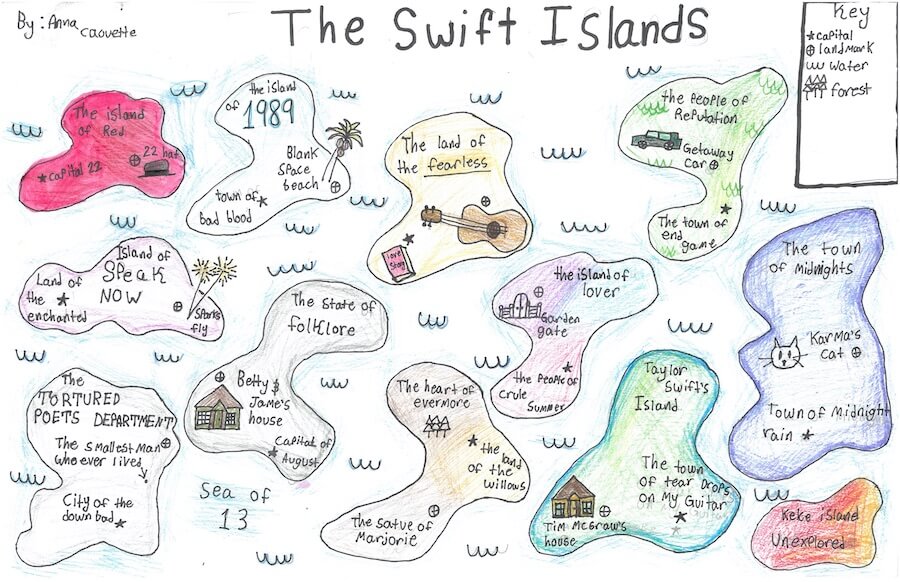 By: Anna
Caouette
The Swift Islands
Key
capital
landmark
water
forest
The island
of Red
22 hat
capital 22
the island
of 1989
Blank
Space
beach
town of
bad blood
The land of
the fearless
Love
Story
the people of
Reputation
Getaway
car
The town of
end
game
Island of
Speak
NOW
Land of
the
enchanted
Sparks
fly
The State of
folklore
Betty &
Jame's
house
Capital of
August
the island of
lover
Garden
gate
the people of
Crule
Summer
The town
of Midnights
Karma's
Cat
Town of Midnight
rain
The
TORTURED
POETS DEPARTMENT
The smallest Man
who ever lived
City of the
down bad
Sea of
13
The heart of
evermore
the land
of the
willows
The satue of
Marjorie
Taylor
Swift's
Island
The town
of tear Drops
on My Guitar
Tim McGraw's
house
Keke island
Unexplored